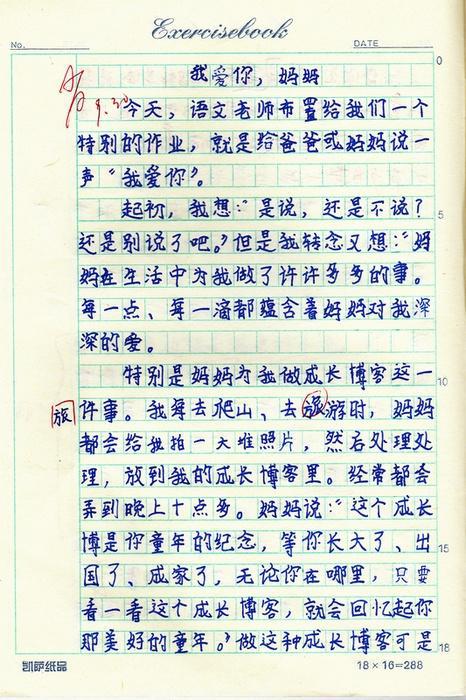 Exercisebook
No.
DATE
我爱你，妈妈
9.30
今天，语文老师布置给我们一个
特别的作业，就是给爸爸或妈妈说一
声“我爱你”。
起初，我想：“是说，还是不说？
还是别说了吧。”但是我转念又想：“妈
妈在生活中为我做了许许多多的事。
每一点、每一滴都蕴含着妈妈对我深
深的爱。
特别是妈妈为我做成长博客这一
件事。我每去爬山、去旅游时，妈妈
旅
都会给我拍一大堆照片，然后处理处
理，放到我的成长博客里。经常都会
弄到晚上十点多。妈妈说：“这个成长
博是你童年的纪念，等你长大了、出
国了、成家了，无论你在哪里，只要
看一看这个成长博客，就会回忆起你
那美好的童年。”做这种成长博客可是
0
5
10
15
18
凯萨纸品
18×16=288